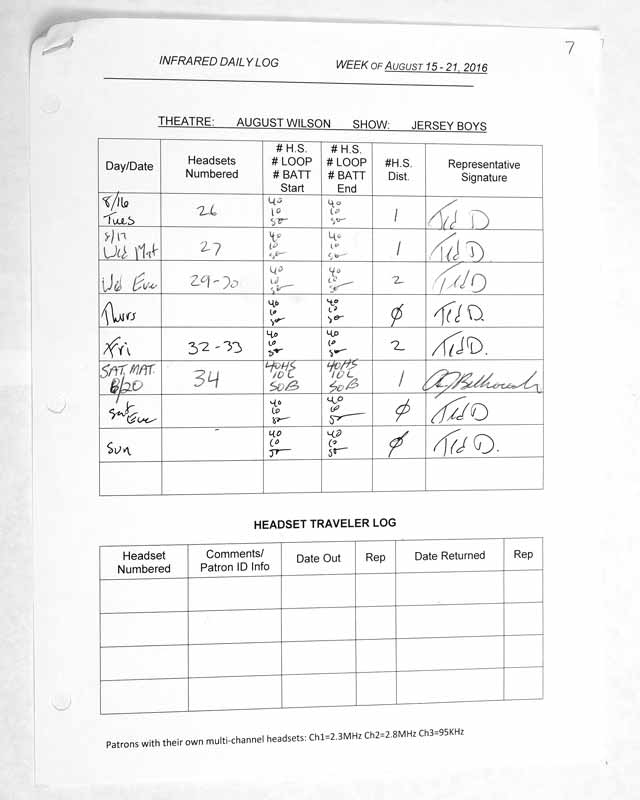 7
INFRARED DAILY LOG WEEK OF AUGUST 15 - 21, 2016
THEATRE: AUGUST WILSON SHOW: JERSEY BOYS
Day/Date
Headsets Numbered
# H.S.
# LOOP
# BATT
Start
# H.S.
# LOOP
# BATT
End
#H.S.
Dist.
Representative
Signature
8/16
Tues
26
40
10
50
40
10
50
1
Ted D
8/17
Wd Mat
27
40
10
50
40
10
50
1
Ted D.
Wd Eve
29-30
40
10
50
40
10
50
2
Ted D
Thurs
40
10
50
40
10
50
Ø
Ted D.
Fri
32-33
40
10
50
40
10
50
2
Ted D.
SAT. MAT.
8/20
34
40HS
10L
50B
40HS
10L
50B
1
Sat
Eve
40
10
50
40
10
50
Ø
Ted D
Sun
40
10
50
40
10
50
Ø
Ted D.
HEADSET TRAVELER LOG
Headset
Numbered
Comments/
Patron ID Info
Date Out
Rep
Date Returned
Rep
Patrons with their own multi-channel headsets: Ch1=2.3MHz Ch2=2.8MHz Ch3=95KHz